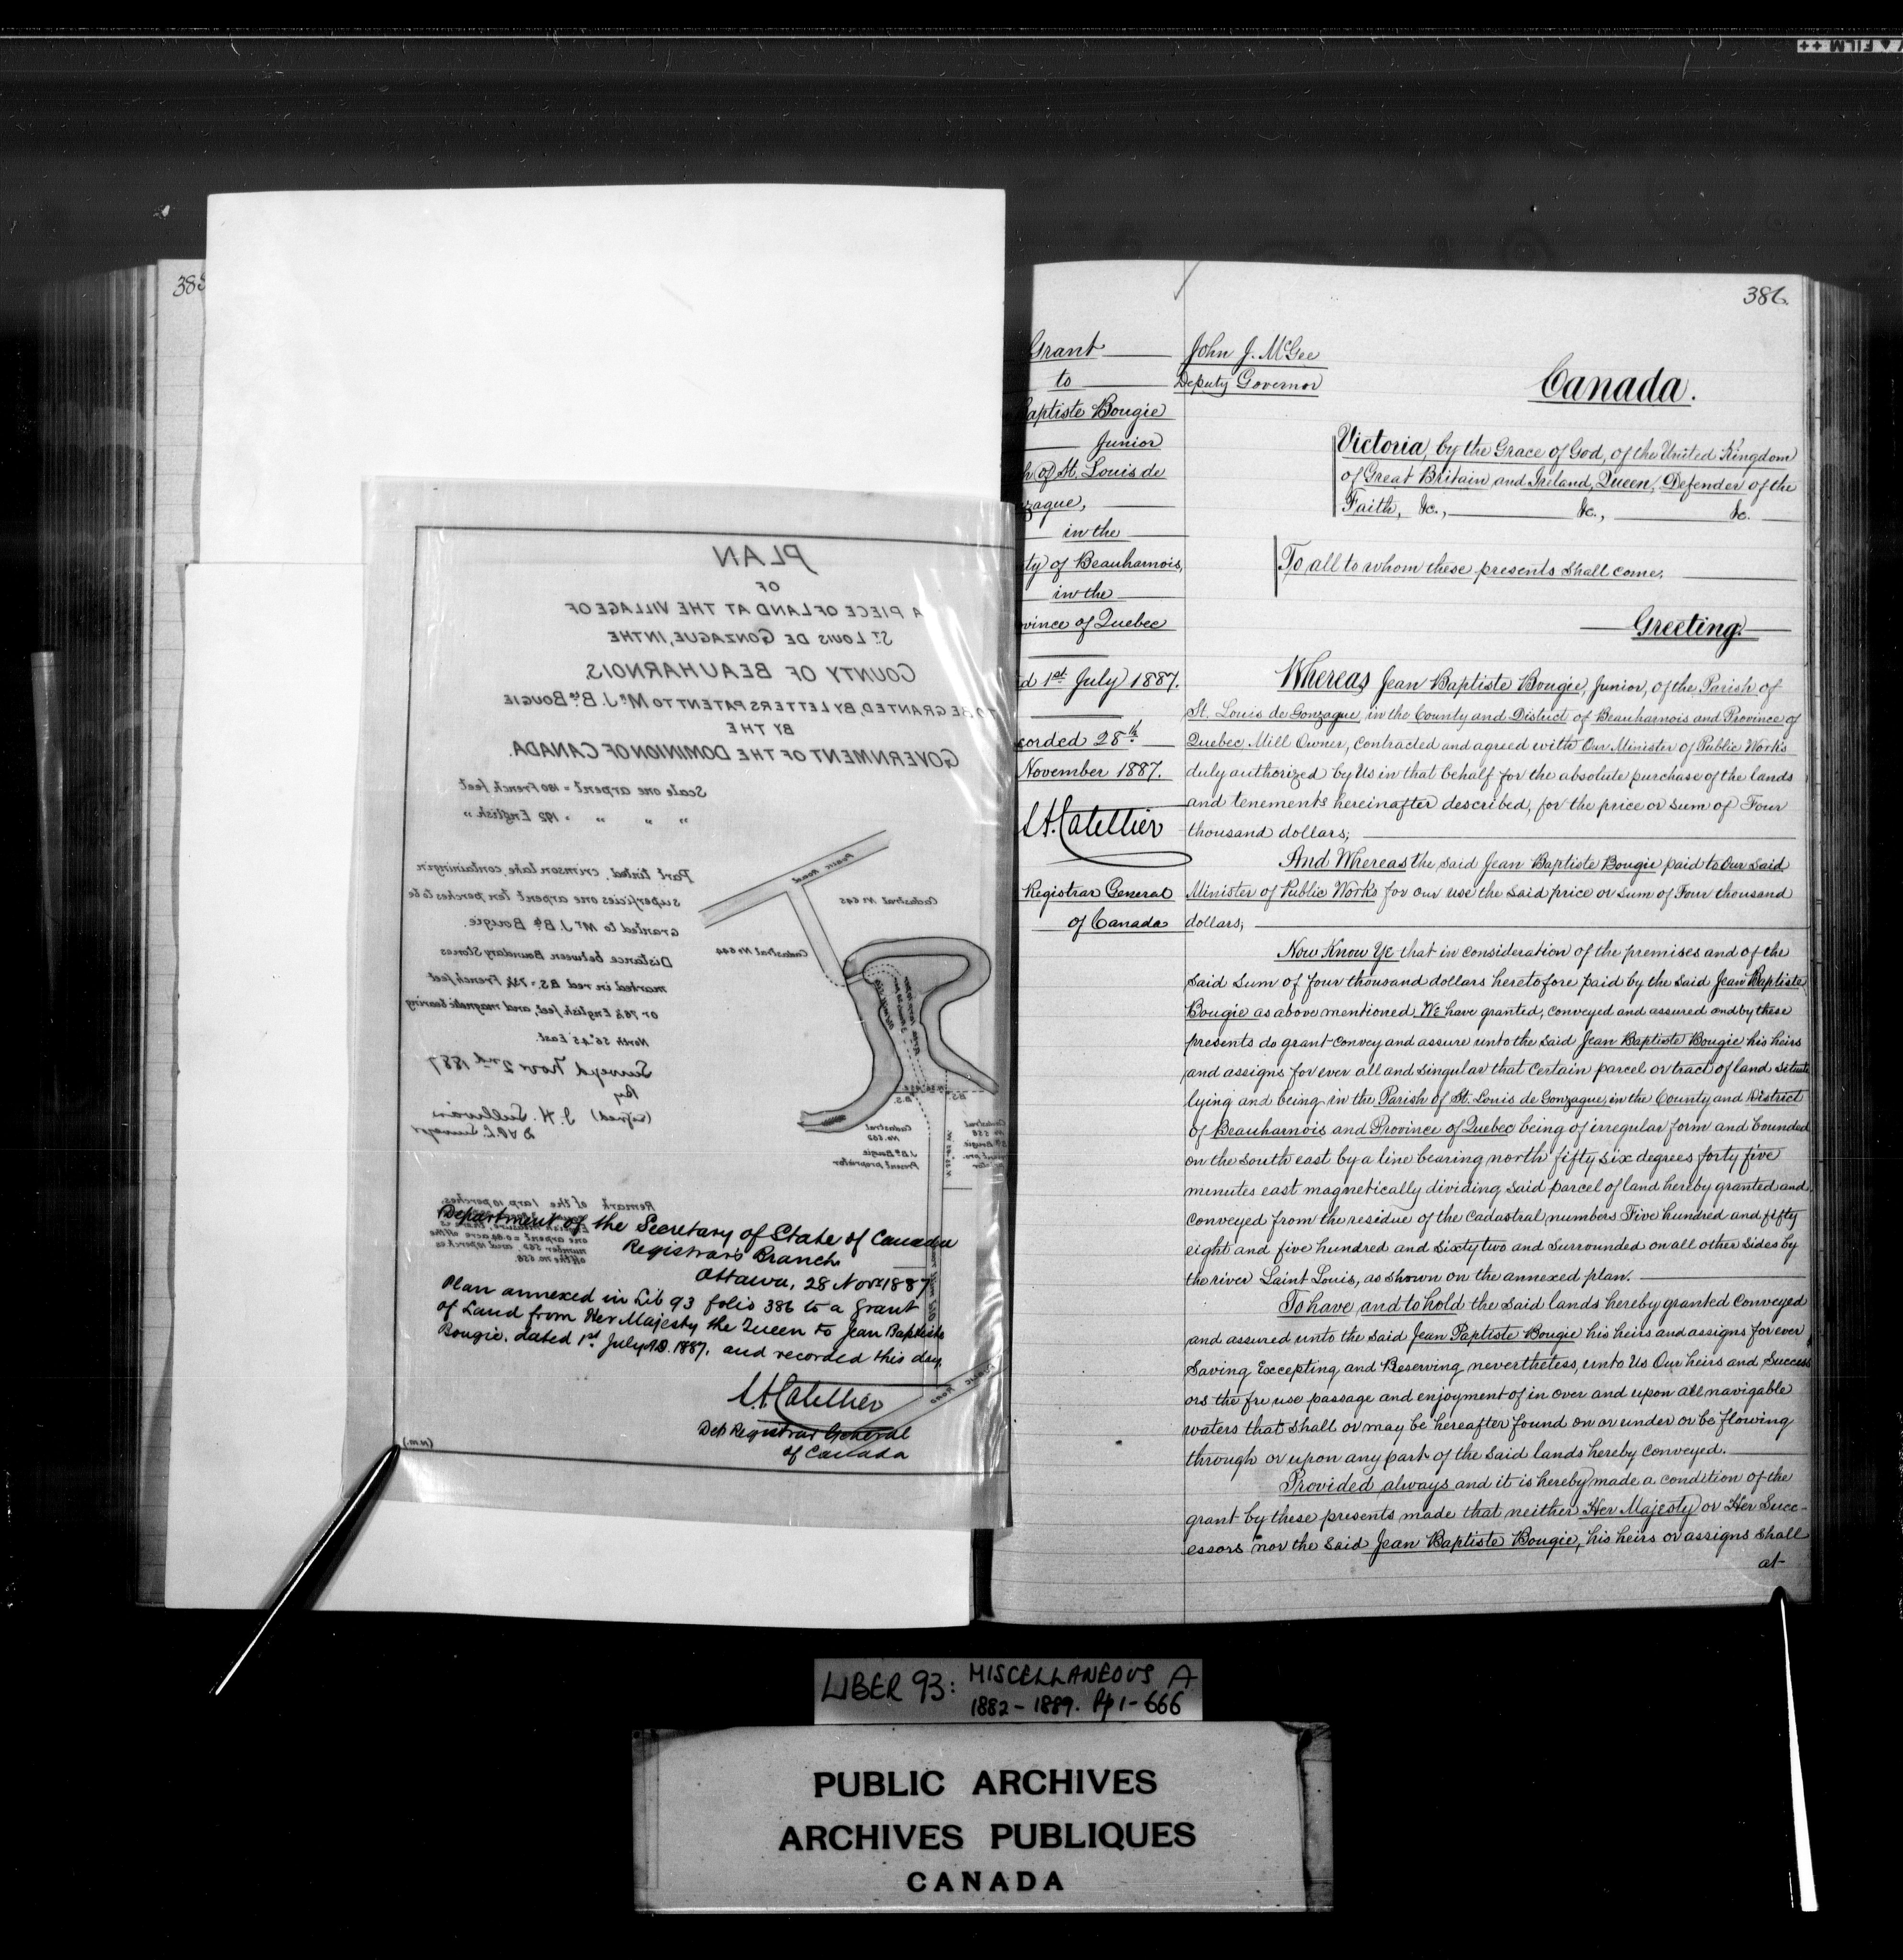 FILM
385
PLAN
OF
A PIECE OF LAND AT THE VILLAGE OF
ST. LOUIS DE GONZAGUE, IN THE
COUNTY OF BEAUHARNOIS,
TO BE GRANTED, BY LETTERS PATENT TO Mr. J. Bte. BOUGIE
BY THE
GOVERNMENT OF THE DOMINION OF CANADA.
Scale one arpent = 180 French feet
" " " = 192 English "
Part tinted, crimson lake, containing in
superficies one arpent ten perches to be
granted to Mr. J. Bte. Bougie.
Distance between Boundary Stones
marked in red B.S. = 73½ French feet
or 78½ English feet, and magnetic bearing
North 56°.45 East.
Surveyed Novr 2nd 1887
By
(Signed) J. H. Sullivan
D & P. L. Surveyor
Public Road
Cadastral No 645
Cadastral No 644
B.S.
B.S.
Cadastral
No. 562
J. Bte Bougie
Present proprietor
Cadastral
No 558
Remark
of the 1 arp 10 perches,
one arpent
number 562 and 10 perches
off the no. 558.
Public Road
Department of the Secretary of State of Canada
Registrar's Branch
Ottawa, 28 Novr 1887
Plan annexed in Lib 93 folio 386 to a Grant
of Land from Her Majesty the Queen to Jean Baptiste
Bougie. dated 1st July A.D. 1887, and recorded this day.
L.A. Catellier
Dep Registrar General
of Canada
386
Grant
to
Baptiste Bougie
Junior
of St. Louis de
zague,
in the
ty of Beauharnois,
in the
vince of Quebec
d 1st July 1887.
corded 28th
November 1887.
L.A. Catellier
Registrar General
of Canada
John J. McGee
Deputy Governor
Canada.
Victoria, by the Grace of God, of the United Kingdom
of Great Britain and Ireland, Queen, Defender of the
Faith, &c., &c., &c.
To all to whom these presents shall come,
Greeting.
Whereas Jean Baptiste Bougie, Junior, of the Parish of
St. Louis de Gonzague, in the County and District of Beauharnois and Province of
Quebec Mill Owner, contracted and agreed with Our Minister of Public Works
duly authorized by Us in that behalf for the absolute purchase of the lands
and tenements hereinafter described, for the price or sum of Four
thousand dollars;
And Whereas the said Jean Baptiste Bougie paid to Our said
Minister of Public Works for our use the said price or sum of Four thousand
dollars;
Now Know Ye that in consideration of the premises and of the
said sum of four thousand dollars heretofore paid by the said Jean Baptiste
Bougie as above mentioned, We have granted, conveyed and assured and by these
presents do grant convey and assure unto the said Jean Baptiste Bougie his heirs
and assigns for ever all and singular that certain parcel or tract of land situate
lying and being in the Parish of St. Louis de Gonzague, in the County and District
of Beauharnois and Province of Quebec being of irregular form and bounded
on the south east by a line bearing north fifty six degrees forty five
menutes east magnetically dividing said parcel of land hereby granted and
conveyed from the residue of the cadastral numbers Five hundred and fifty
eight and five hundred and sixty two and surrounded on all other sides by
the river Saint Louis, as shown on the annexed plan.
To have and to hold the said lands hereby granted conveyed
and assured unto the said Jean Baptiste Bougie his heirs and assigns for ever
Saving Excepting and Reserving nevertheless, unto Us Our heirs and Success
ors the free use passage and enjoyment of in over and upon all navigable
waters that shall or may be hereafter found on or under or be flowing
through or upon any part of the said lands hereby conveyed.
Provided always and it is hereby made a condition of the
grant by these presents made that neither Her Majesty or Her Succ-
essors nor the said Jean Baptiste Bougie, his heirs or assigns shall
at
LIBER 93: MISCELLANEOUS A
1882 - 1889. Pp 1 - 666
PUBLIC ARCHIVES
ARCHIVES PUBLIQUES
CANADA